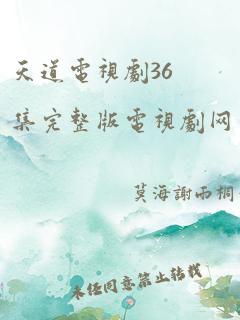 天道電視劇36
集完整版電視劇网
莫海謝雨桐
未经同意禁止转载